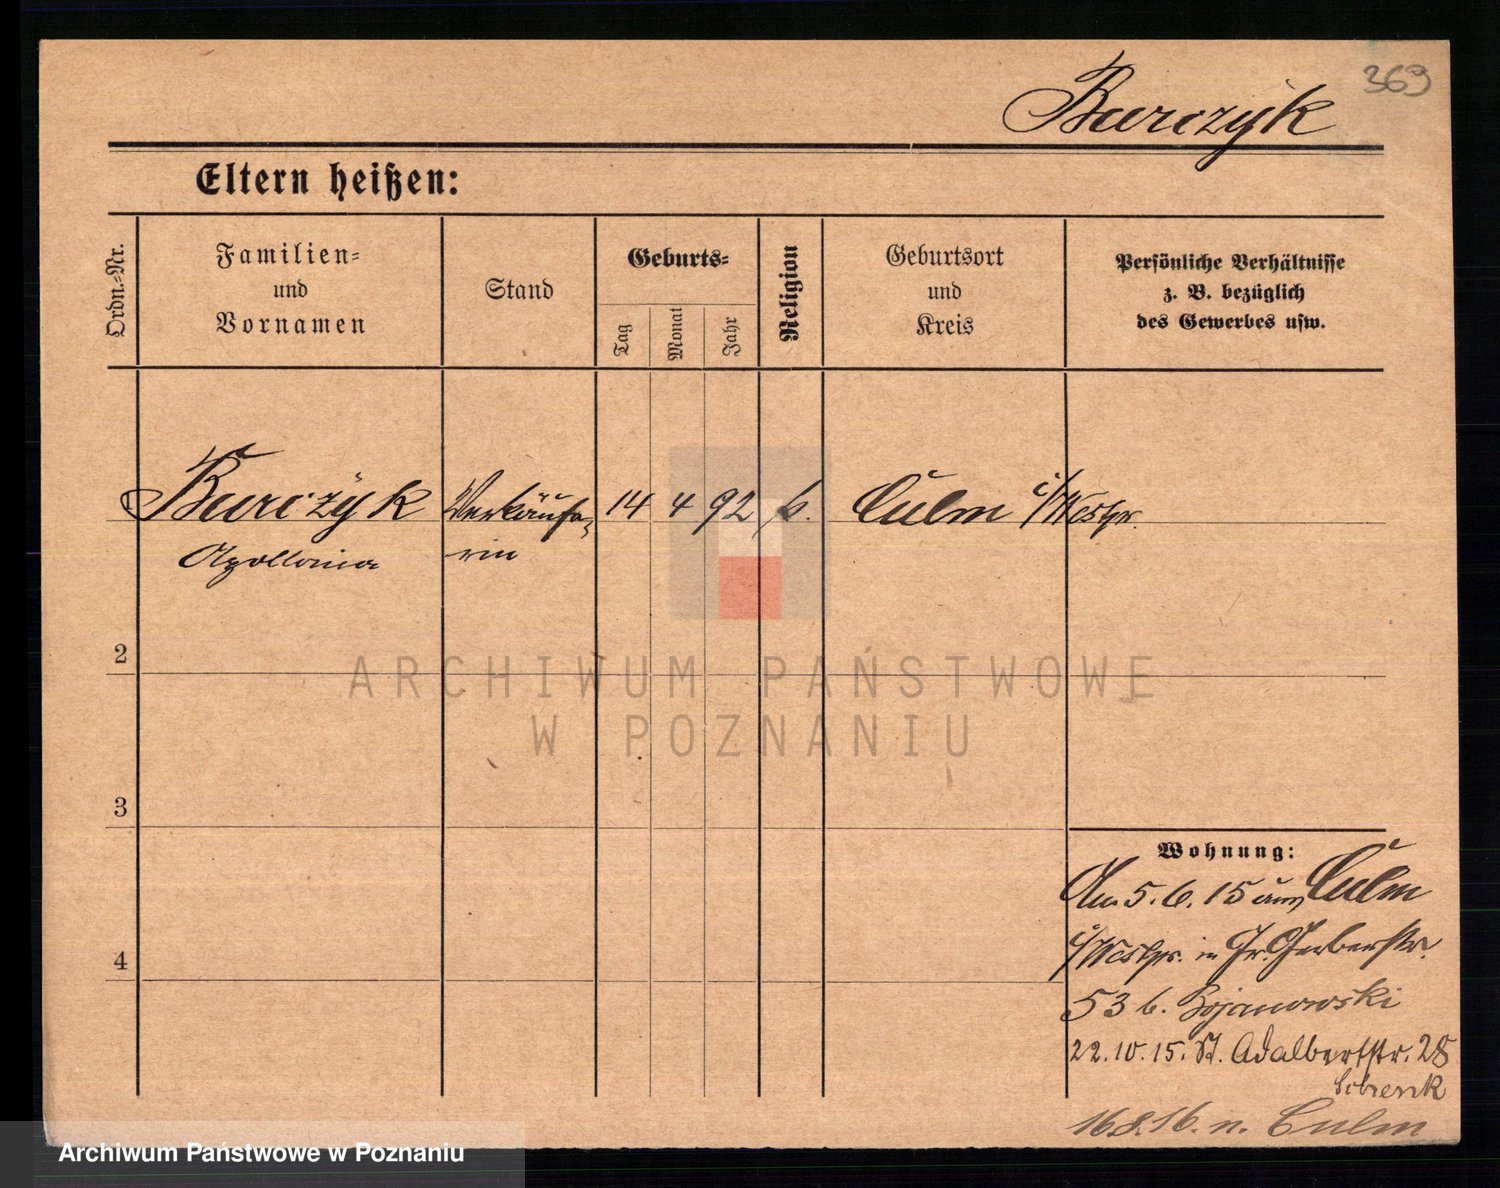 369
Burczyk
Eltern heißen:
Ordn.-Nr.
Familien-
und
Vornamen
Stand
Geburts-
Tag
Monat
Jahr
Religion
Geburtsort
und
Kreis
Persönliche Verhältnisse
z. B. bezüglich
des Gewerbes usw.
Burczyk
Apollonia
Verkäufe-
rin
14
4
92
k.
Culm i/Westpr.
2
3
4
Wohnung:
Am 5. 6. 15 aus Culm
i/Westpr. in Gr. Gerberstr.
53 b. Bojanowski
22. 10. 15. St. Adalbertstr. 28
16.8.16. n. Culm
ARCHIWUM PAŃSTWOWE
W POZNANIU
Archiwum Państwowe w Poznaniu